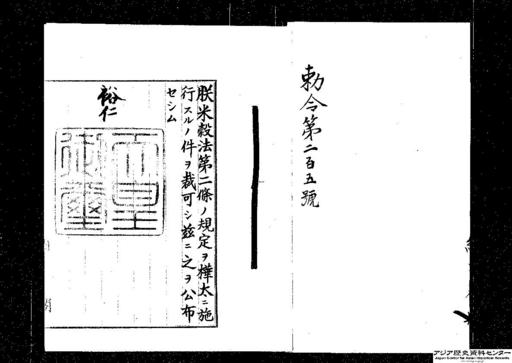 勅令第二百五號
朕米穀法第二條ノ規定ヲ樺太ニ施
行スルノ件ヲ裁可シ茲ニ之ヲ公布
セシム
裕仁
天皇
御璽
アジア歴史資料センター
Japan Center for Asian Historical Records